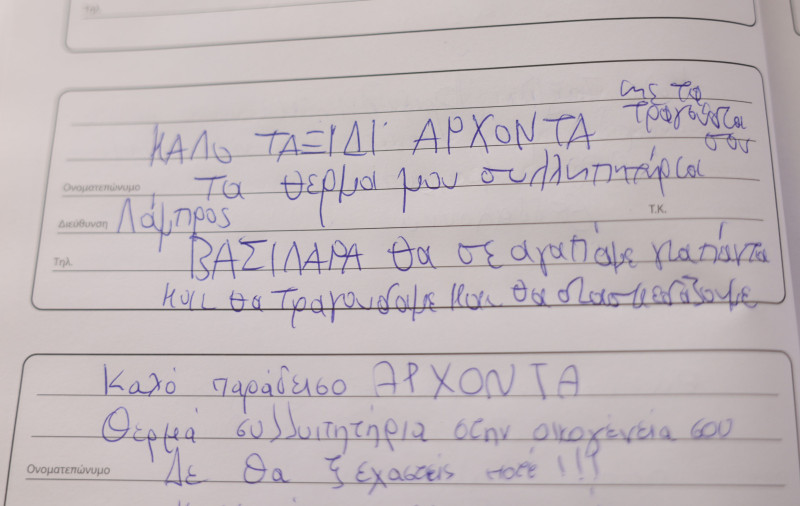 Τηλ.
ΚΑΛΟ ΤΑΞΙΔΙ ΑΡΧΟΝΤΑ
με τα
τραγούδια
σου
Ονοματεπώνυμο Τα θερμα μου συλληπητήρια
Διεύθυνση Λάμπρος Τ.Κ.
Τηλ. ΒΑΣΙΛΑΡΑ θα σε αγαπάμε για πάντα
και θα τραγουδαμε και θα διασκεδάζουμε
Καλό παράδεισο ΑΡΧΟΝΤΑ
Θερμά συλλυιτητήρια στην οικογένεια σου
Ονοματεπώνυμο Δε θα ξεχαστείς ποτέ !!!